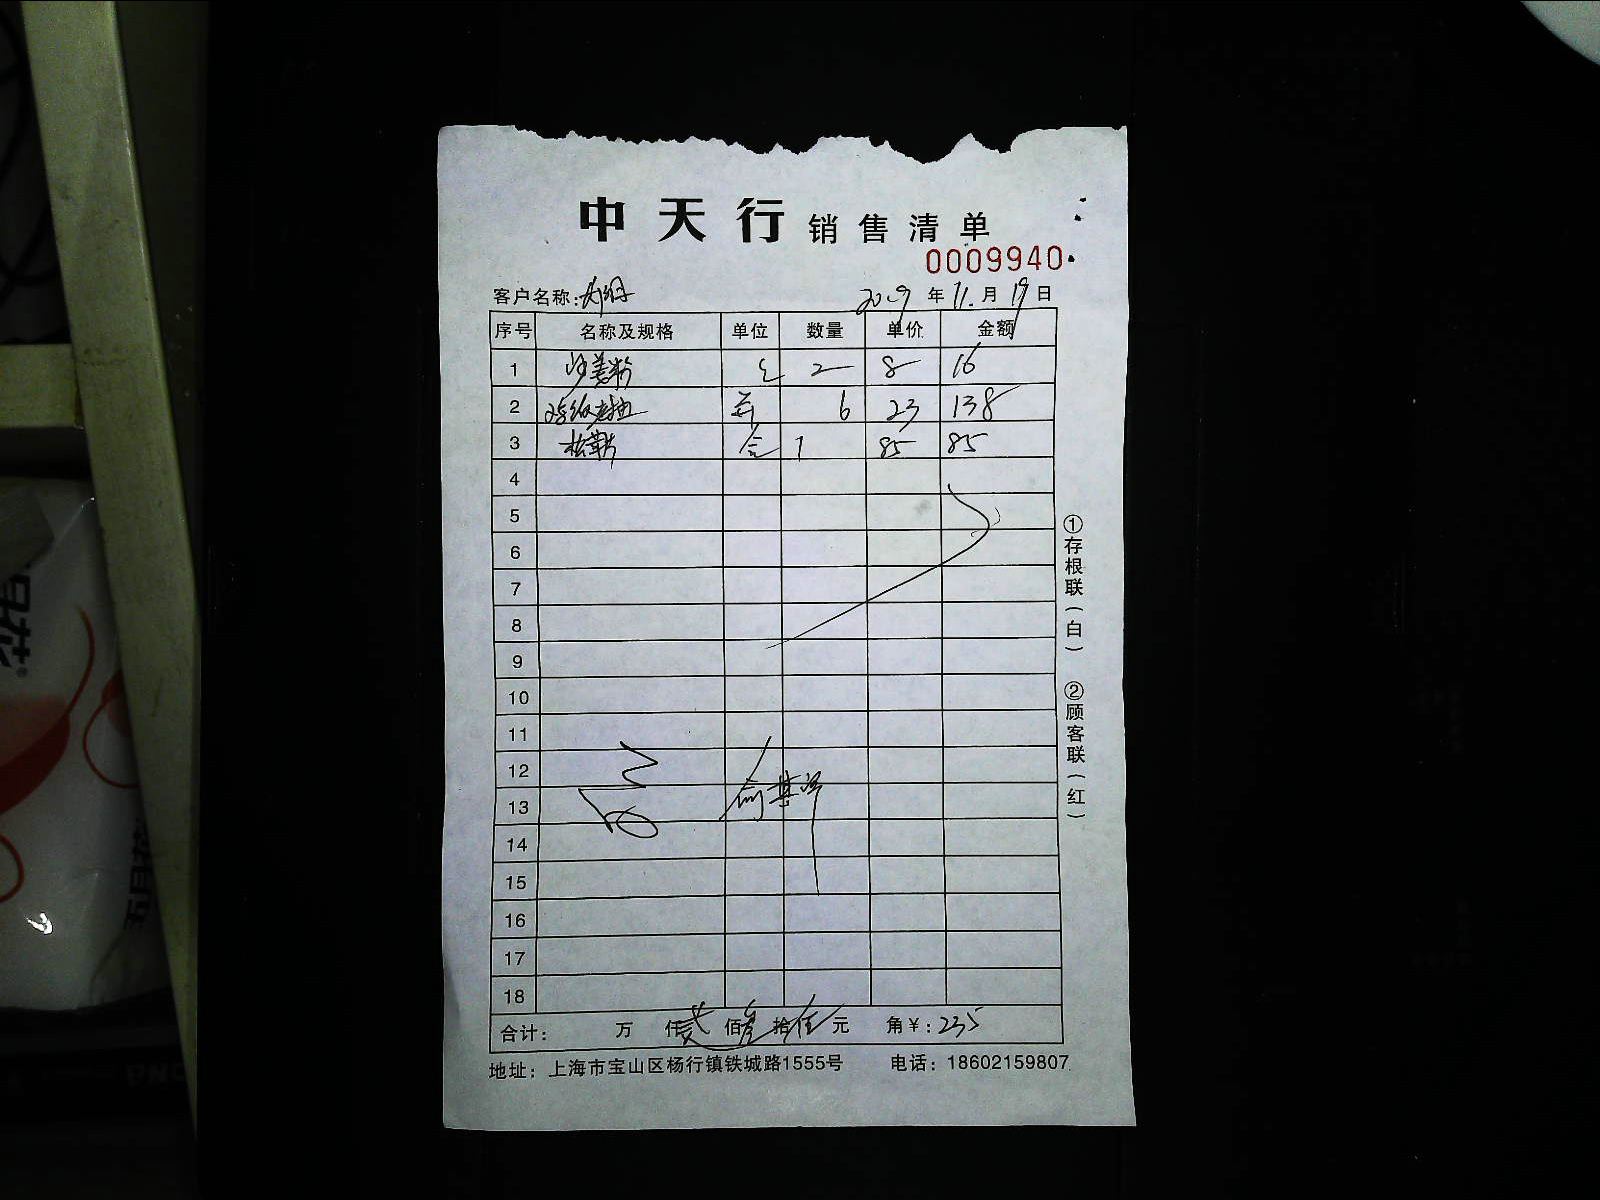 中天行 销售清单
0009940
客户名称:
2019 年 11 月 19 日
序号 名称及规格 单位 数量 单价 金额
1 沙姜粉 包 2 8 16
2 6 23 138
3 1 85 85
4
5
6
7
8
9
10
11
12
13
14
15
16
17
18
合计: 万 仟 贰 佰 叁 拾 伍 元 角 ¥: 235
地址: 上海市宝山区杨行镇铁城路1555号 电话: 18602159807
①存根联(白) ②顾客联(红)